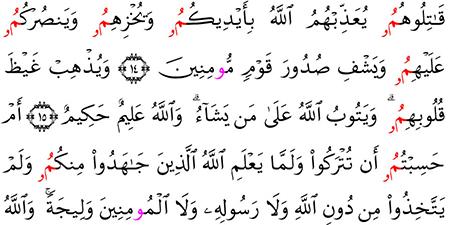 قَٰتِلُوهُمُۥ يُعَذِّبْهُمُ ٱللَّهُ بِأَيْدِيكُمُۥ وَيُخْزِهِمُۥ وَيَنصُرْكُمُۥ
عَلَيْهِمُۥ وَيَشْفِ صُدُورَ قَوْمٍ مُّومِنِينَ ١٤ وَيُذْهِبْ غَيْظَ
قُلُوبِهِمُۥ ۗ وَيَتُوبُ ٱللَّهُ عَلَىٰ مَن يَشَآءُ ۗ وَٱللَّهُ عَلِيمٌ حَكِيمٌ ١٥ أَمْ
حَسِبْتُمُۥ أَن تُتْرَكُوا۟ وَلَمَّا يَعْلَمِ ٱللَّهُ ٱلَّذِينَ جَٰهَدُوا۟ مِنكُمُۥ وَلَمْ
يَتَّخِذُوا۟ مِن دُونِ ٱللَّهِ وَلَا رَسُولِهِۦ وَلَا ٱلْمُومِنِينَ وَلِيجَةً ۚ وَٱللَّهُ